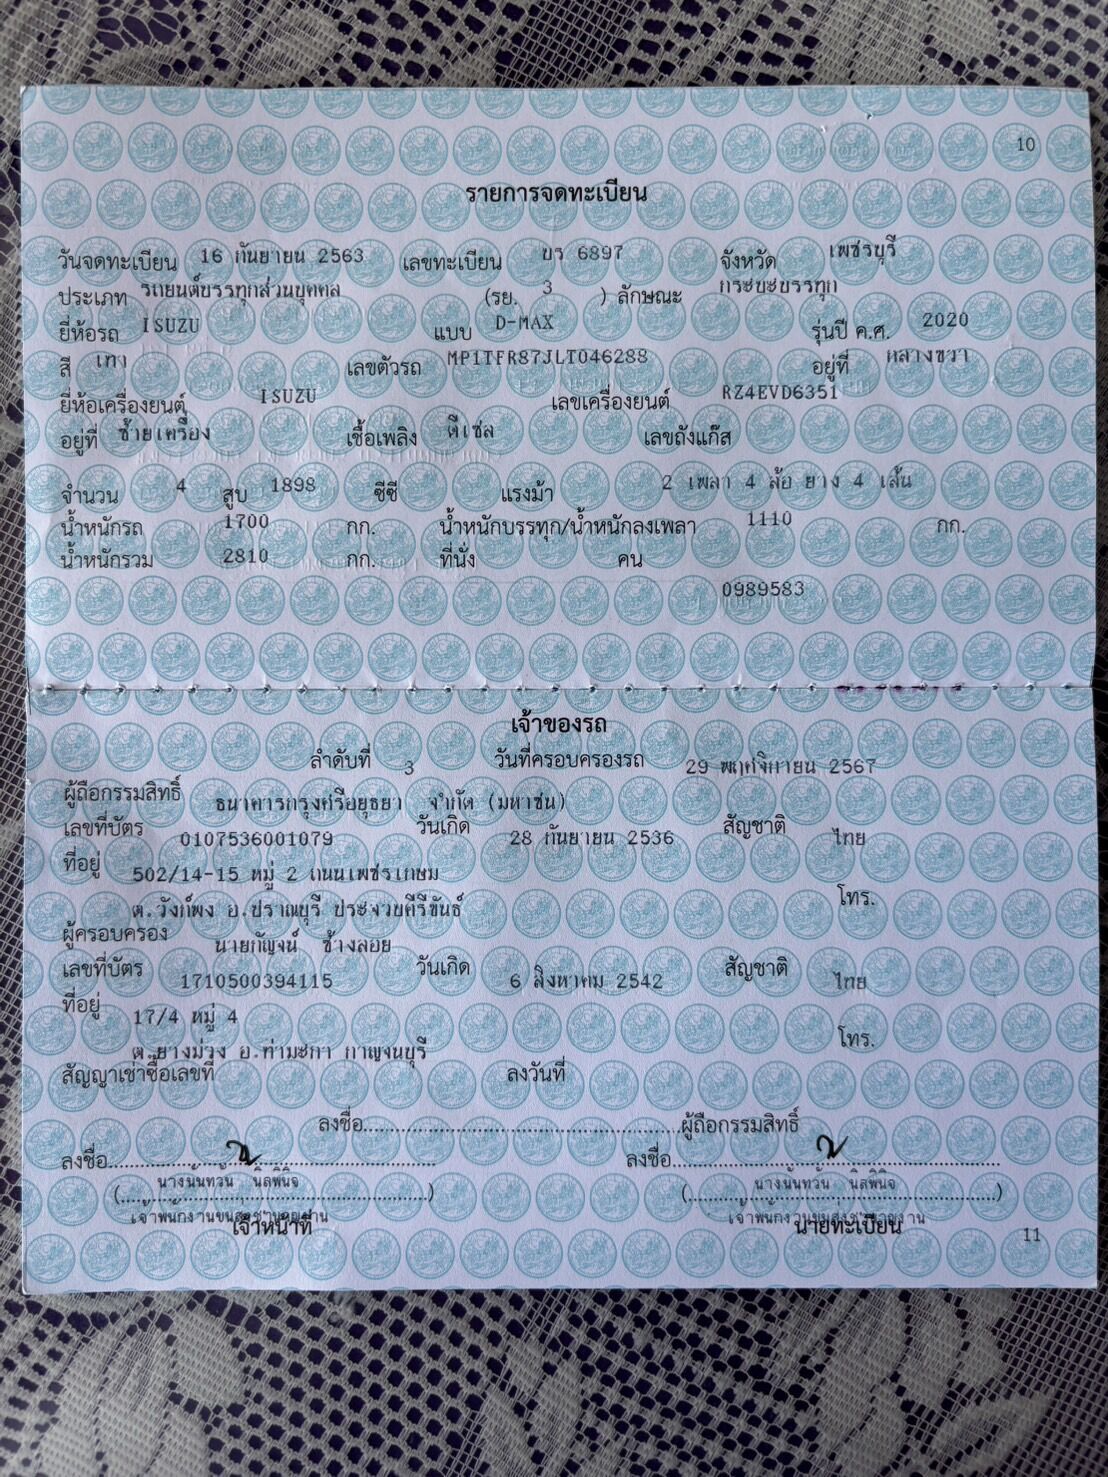 10
รายการจดทะเบียน
วันจดทะเบียน 16 กันยายน 2563 เลขทะเบียน บร 6897 จังหวัด เพชรบุรี
ประเภท รถยนต์บรรทุกส่วนบุคคล (รย. 3 ) ลักษณะ กระบะบรรทุก
ยี่ห้อรถ ISUZU แบบ D-MAX รุ่นปี ค.ศ. 2020
สี เทา เลขตัวรถ MP1TFR87JLT046288 อยู่ที่ กลางขวา
ยี่ห้อเครื่องยนต์ ISUZU เลขเครื่องยนต์ RZ4EVD6351
อยู่ที่ ซ้ายเครื่อง เชื้อเพลิง ดีเซล เลขถังแก๊ส
จำนวน 4 สูบ 1898 ซีซี แรงม้า 2 เพลา 4 ล้อ ยาง 4 เส้น
น้ำหนักรถ 1700 กก. น้ำหนักบรรทุก/น้ำหนักลงเพลา 1110 กก.
น้ำหนักรวม 2810 กก. ที่นั่ง คน
0989583
เจ้าของรถ
ลำดับที่ 3 วันที่ครอบครองรถ 29 พฤศจิกายน 2567
ผู้ถือกรรมสิทธิ์ ธนาคารกรุงศรีอยุธยา จำกัด (มหาชน)
เลขที่บัตร 0107536001079 วันเกิด 28 กันยายน 2536 สัญชาติ ไทย
ที่อยู่ 502/14-15 หมู่ 2 ถนนเพชรเกษม
ต.วังก์พง อ.ปราณบุรี ประจวบคีรีขันธ์ โทร.
ผู้ครอบครอง นายกัญจน์ ช้างลอย
เลขที่บัตร 1710500394115 วันเกิด 6 สิงหาคม 2542 สัญชาติ ไทย
ที่อยู่ 17/4 หมู่ 4
ต.ยางม่วง อ.ท่ามะกา กาญจนบุรี โทร.
สัญญาเช่าซื้อเลขที่ ลงวันที่
ลงชื่อ ผู้ถือกรรมสิทธิ์
ลงชื่อ ลงชื่อ
(นางนันทวัน นิลพินิจ) (นางนันทวัน นิลพินิจ)
เจ้าพนักงานขนส่งชำนาญงาน เจ้าพนักงานขนส่งชำนาญงาน
เจ้าหน้าที่ นายทะเบียน
11